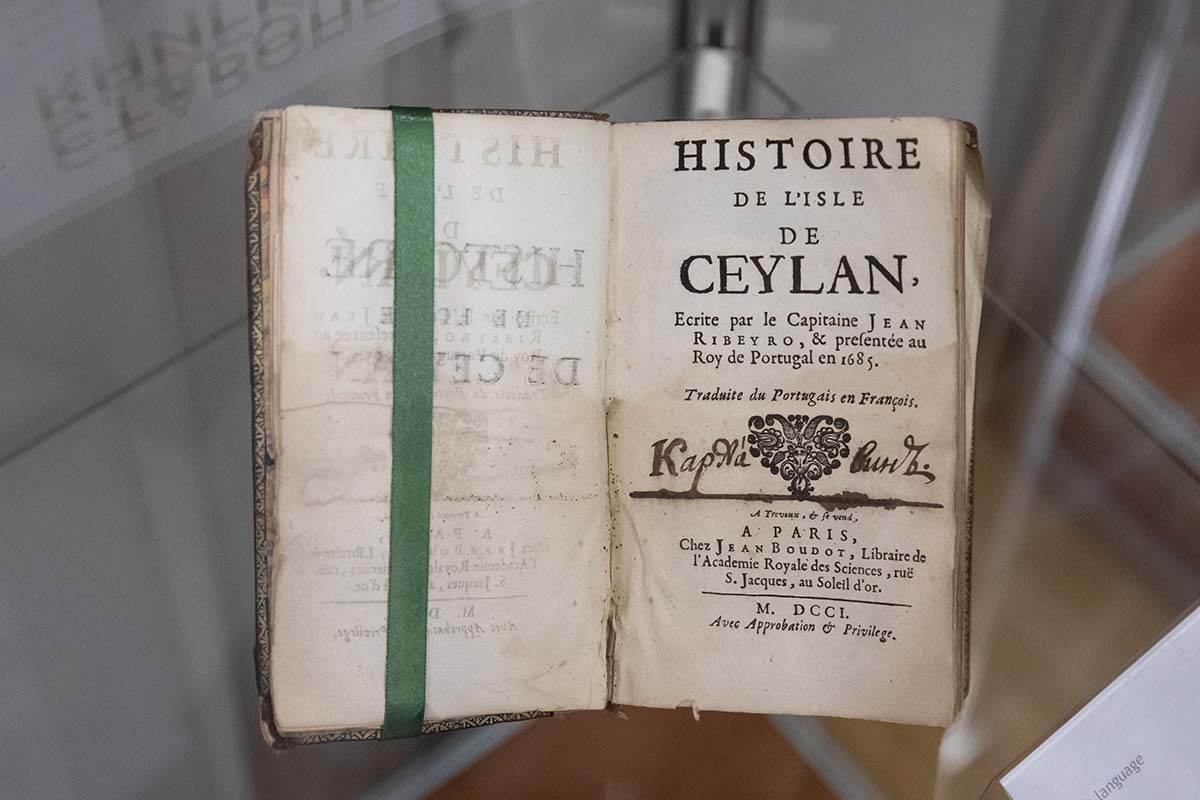 HISTOIRE
DE L'ISLE
DE
CEYLAN,
Ecrite par le Capitaine JEAN
RIBEYRO, & presentée au
Roy de Portugal en 1685.
Traduite du Portugais en François.
A Trevoux, & se vend,
A PARIS,
Chez JEAN BOUDOT, Libraire de
l'Academie Royale des Sciences, ruë
S. Jacques, au Soleil d'or.
M. DCCI.
Avec Approbation & Privilege.
language